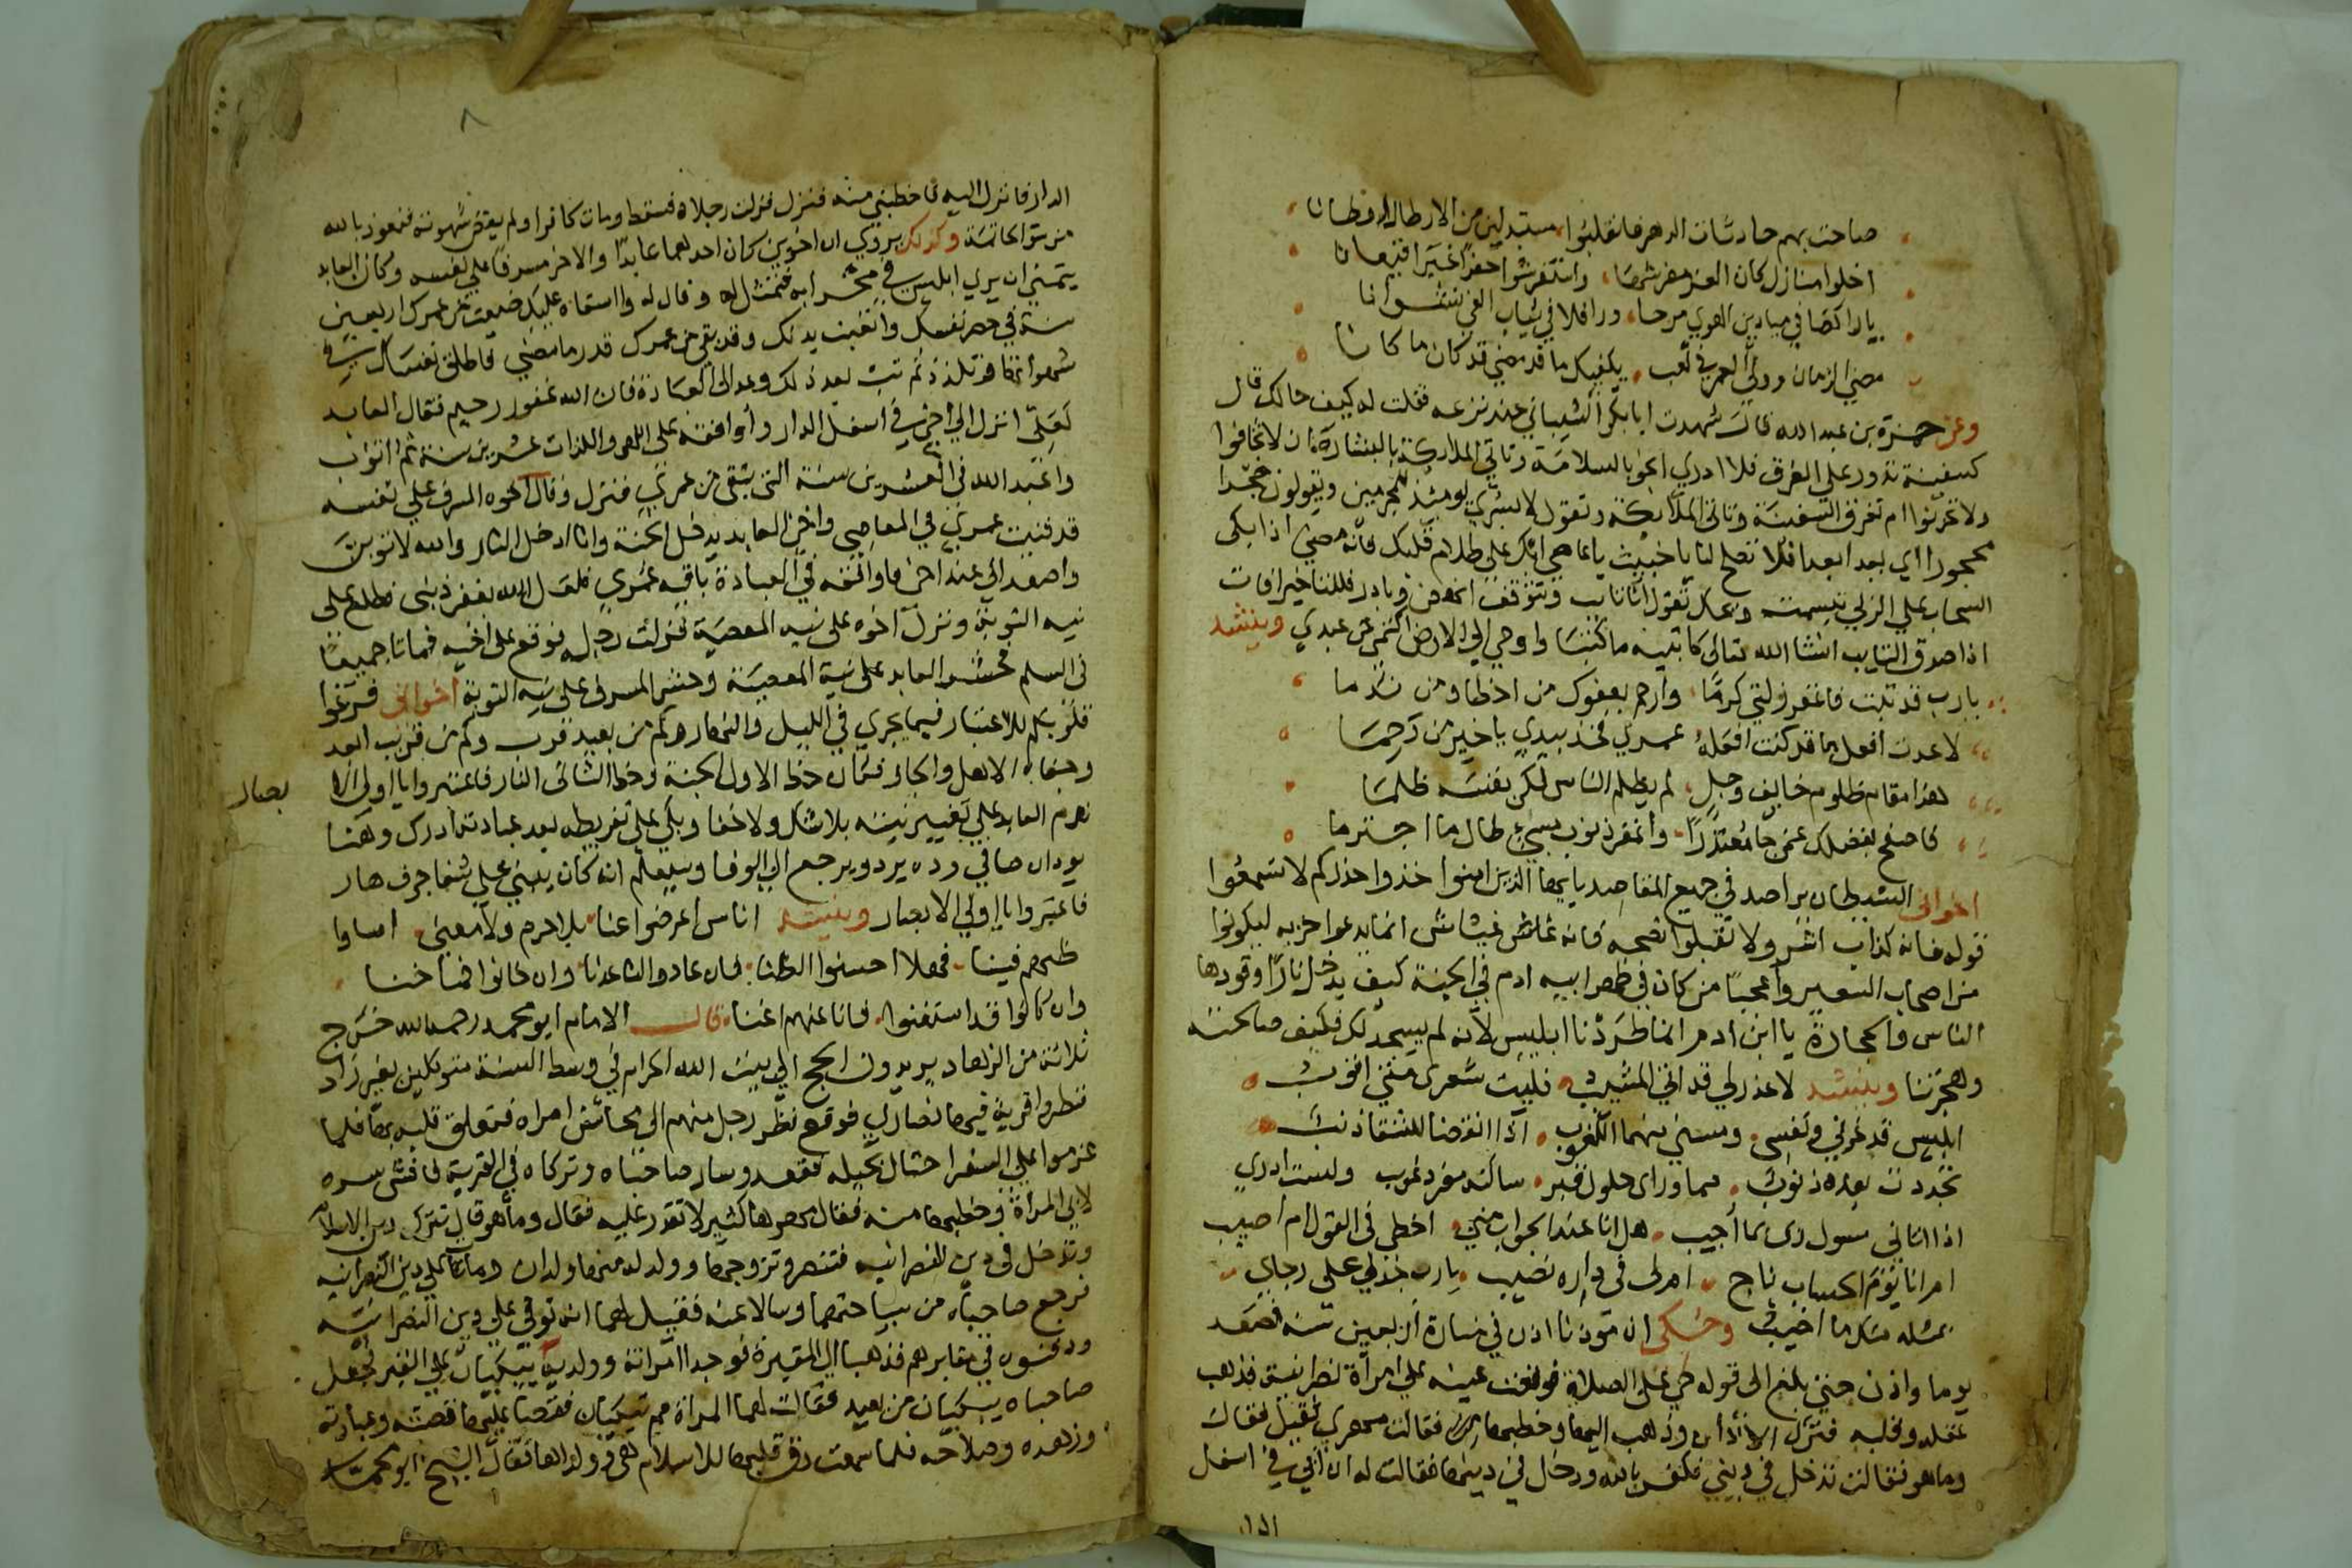 صاحت بهم حادثات الدهر فانقلبوا مستبدلين من الاوطان اوطانا
اخلوا منازل كان العز مفرشها واستفرشوا حفرا غبرا قيعانا
يا راكضا في ميادين الهوي مرحا ورافلا في ثياب الغي نشوانا
مضي الزمان وولي العمر في لعب يكفيك ما قد مضي قد كان ما كانا
وعن حمزة بن عبد الله قال شهدت ابا بكر الشيباني عند نزعه فقلت له كيف حالك قال
كسفينة تدور على الغرق فلا ادري انجوا بالسلامة وتاتي الملائكة بالبشارة ان لا تخافوا
ولا تحزنوا ام تغرق السفينة وتاتي الملائكة وتقول لا بشري يومئذ للمجرمين ويقولون حجرا
محجورا اي بعدا بعدا فلا تصلح لنا يا خبيث يا عاصي ابك على ظلام قلبك فانه مضي اذا بكى
السحاب على الربي تبسمت وعدك تقول انا تايب وتتوقف انهض وبادر فللتاخير افات
اذا صدق التايب انشا الله تعالى كاتبيه ما كتبنا واوحي الي الارض اكتمي عن عبدي وينشد
يا رب قد تبت فاغفر زلتي كرما وارحم بعفوك من اخطا ومن ندما
لا عدت افعل ما قد كنت افعله عمري فخذ بيدي يا خير من رحما
هذا مقام ظلوم خايف وجل لم يظلم الناس لكن نفسه ظلما
فاصفح بفضلك عمن جا معتذرا واغفر ذنوب مسيء طال ما اجترما
اخواني الشيطان يراصد في جميع المقاصد يا ايها الذين امنوا خذوا حذركم لا تسمعوا
قوله فانه كذاب اشر ولا تقبلوا نصحه فانه غاش غشاش انما يدعوا حزبه ليكونوا
من اصحاب السعير واعجبا من كان في ظهر ابيه ادم في الجنة كيف يدخل نارا وقودها
الناس والحجارة يا ابن ادم انما طردنا ابليس لانه لم يسجد لك فكيف صالحته
وهجرتنا وينشد لا عذر لي قد اتي المشيب فليت شعري متي اتوب
ابليس قد غرني ونفسي ومسني منهما اللغوب اذا انقضا للشقا ذنب
تجددت بعده ذنوب مما وراى حلول قبر ساكنه مفرد غريب ولست ادري
اذا اتاني رسول ربي بما اجيب هل انا عند الجواب مني اخطي في القول ام اصيب
ام انا يوم الحساب ناج ام لي في ناره نصيب يا رب خذ لي على رجاي
وحكى ان موذنا اذن في منارة اربعين سنة فصعد
يوما واذن حتي بلغ الى قوله حي على الصلاة فوقعت عينه علي امراة نصرانية فذهب
عقله وقلبه فترك الاذان وذهب اليها وخطبها فقالت مهري ثقيل فقال
وما هو فقالت تدخل في ديني فكفر بالله ودخل في دينها فقالت له ان ابي في اسفل
الدار
٨
الدار فانزل اليه فاخطبني منه فنزل فزلت رجلاه فسقط ومات كافرا ولم يقض شهوته فنعوذ بالله
من سو الخاتمة وكذلك يروي ان اخوين كان احدهما عابدا والاخر مسرفا علي نفسه وكان العابد
يتمني ان يري ابليس في محرابه فتمثل له وقال له وااسفاه عليك ضيعت من عمرك اربعين
سنة في حصر نفسك واتعبت بدنك وقد بقي من عمرك قدر ما مضي فاطلق نفسك في
شهواتها وتلذذ ثم تب بعد ذلك وعد الى العبادة فان الله غفور رحيم فقال العابد
لعلي انزل الي اخي في اسفل الدار واوافقه على اللهو واللذات عشرين سنة ثم اتوب
واعبد الله في العشرين سنة التي تبقى من عمري فنزل وقال اخوه المسرف علي نفسه
قد فنيت عمري في المعاصي واخي العابد يدخل الجنة وانا ادخل النار والله لاتوبن
واصعد الي عند اخي واوافقه في العبادة باقي عمري فلعل الله يغفر ذنبي فطلع على
نية التوبة ونزل اخوه على نية المعصية فزلت رجله فوقع على اخيه فماتا جميعا
في السلم فحشر العابد على نية المعصية وحشر المسرف على نية التوبة اخواني فرغوا
قلوبكم للاعتبار فيما يجري في الليل والنهار وكم من بعيد قرب وكم من قريب ابعد
وجفاه الاهل والجار فكان حظ الاول الجنة وحظ الثاني النار فاعتبروا يا اولي الا
بصار
ندم العابد علي تغيير نيته بلا شك ولا خفا وبكى على تفريطه بعد عبادته ادرك وهنا
يود ان صافي وده يرد ويرجع الي الوفا وسيعلم انه كان يبني علي شفا جرف هار
فاعتبروا يا اولي الابصار وينشد اناس اعرضوا عنا بلا جرم ولا معنى اساوا
ظنهم فينا فهلا احسنوا الظنا فان عادوا لنا عدنا وان خانوا فما خنا
وان كانوا قد استغنوا فانا عنهم اغنا قال الامام ابو محمد رحمه الله خرج
ثلاثة من الزهاد يريدون الحج الي بيت الله الحرام في وسط السنة متوكلين بغير زاد
فنظروا قرية فيها نصارى فوقع نظر رجل منهم الى محاسن امراه فتعلق قلبه بها فلما
عزموا علي السفر احتال بحيله فقعد وسار صاحباه وتركاه في القرية فافشى سره
لابي المراة وخطبها منه فقال مهرها كثير لا تقدر عليه فقال وما هو قال تترك دين الاسلام
وتدخل في دين النصرانيه فتنصر وتزوجها وولد له منها ولدان ومات علي دين النصرانيه
فرجع صاحباه من سياحتهما وسالا عنه فقيل لهما انه توفي على دين النصرانية
ودفنوه في مقابرهم فذهبا الي المقبرة فوجدا امراته وولديه يبكيان على القبر فجعل
صاحباه يبكيان من بعيد فقالت لهما المراة مم تبكيان فقصا عليها قصته وعبادته
وزهده وصلاحه فلما سمعت رق قلبها للاسلام هي وولداها فقال الشيخ ابو محمد